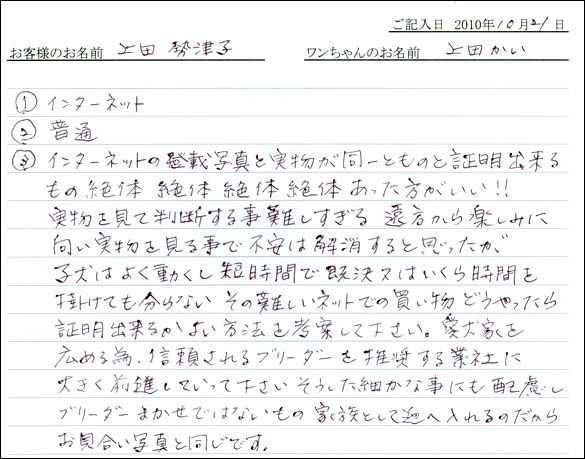 ご記入日 2010年10月21日
お客様のお名前 上田 勢津子 ワンちゃんのお名前 上田かい
① インターネット
② 普通
③ インターネットの登載写真と実物が同一とものと証明出来る
もの 絶体 絶体 絶体 絶体 あった方がいい!!
実物を見て判断する事難しすぎる 遠方から楽しみに
向い実物を見る事で不安は解消すると思ったが
子犬はよく動くし 短時間で既決又はいくら時間を
掛けても分らない その難しいネットでの買い物 どうやったら
証明出来るかよい方法を考案して下さい。愛犬家を
広める為、信頼されるブリーダーを推奨する業社に
大きく前進していって下さい そうした細かな事にも配慮し
ブリーダーまかせではないもの 家族として迎へ入れるのだから
お見合い写真と同じです。